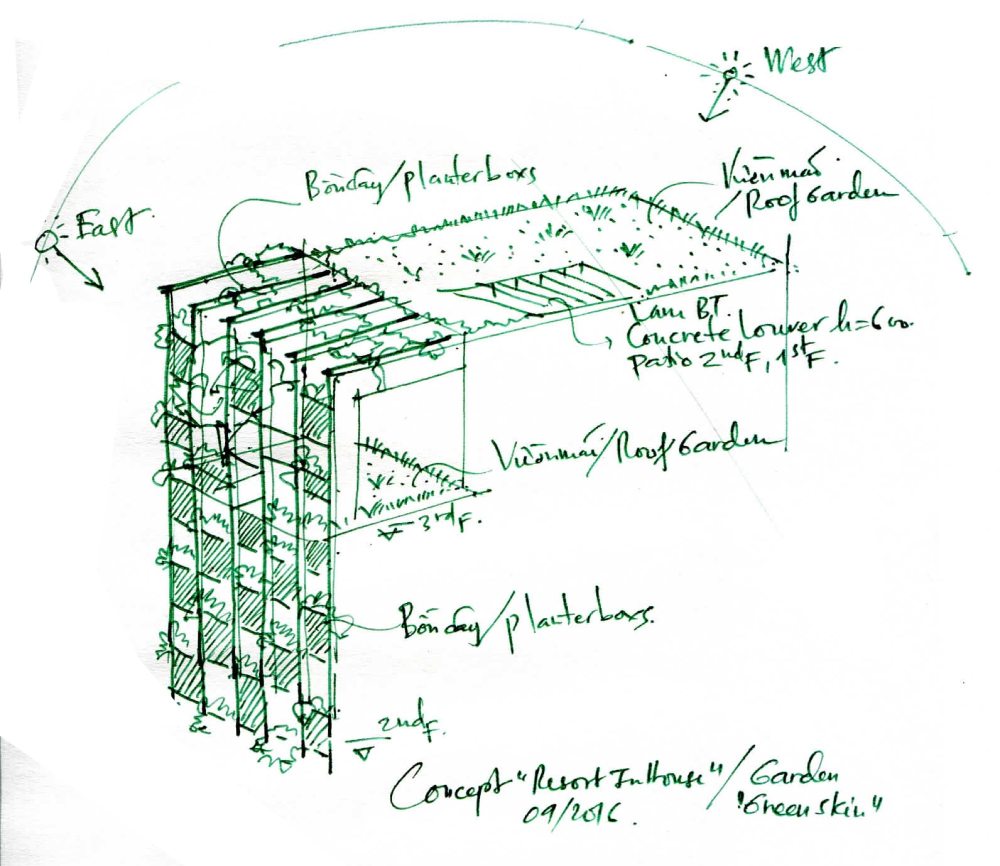 West
Bồn cây/planterboxs
Vườn mái
/Roof Garden
East
Lam BT.
Concrete Louver h=600.
patio 2ndF, 1stF.
Vườn mái/Roof Garden
3rdF.
Bồn cây/planterboxs.
2ndF.
Concept "Resort In House"/Garden
09/2016. "Green skin"